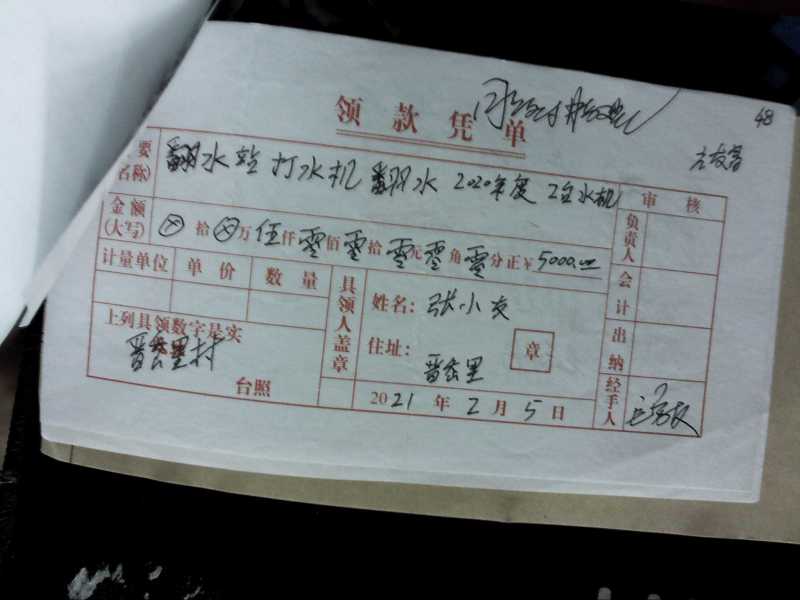 48
领款凭单
要 翻水站打水机翻水 2020年度 2台水机 审核
名称)
金额 ⊗拾⊗万伍仟零佰零拾零元零角零分正¥5000.00 负责人
(大写)
计量单位 单价 数量 具领人盖章 姓名: 张小友 会计
上列具领数字是实 住址: 晋岙里 章 出纳
晋岙里村
台照 2021年2月5日 经手人